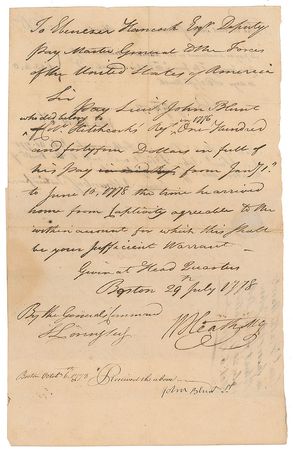 To Ebenezer Hancock Esqr. Deputy
Pay Master General to the Forces
of the United States of America
Sir
Pay Lieut. John Blunt
who did belong to in 1776
Hitchcocks Regt. One Hundred
and forty four Dollars in full of
his Pay from Jany 1st
to June 10. 1778 the time he arrived
home from Captivity agreeable to the
within account for which this shall
be your Sufficient Warrant
Given at Head Quarters
Boston 29th July 1778
By the General's Command W Heath MG
J Loring
Boston Octobr. 6th 1778 Received the above
John Blunt Lt